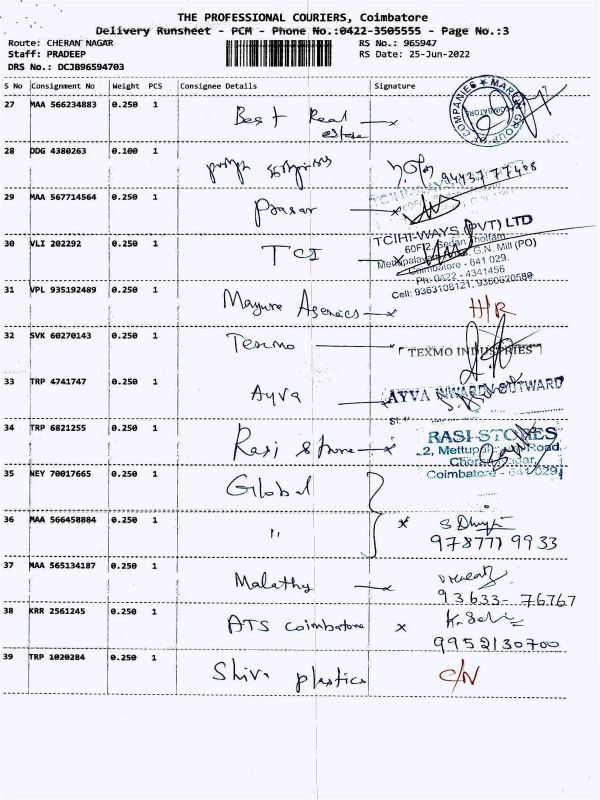 THE PROFESSIONAL COURIERS, Coimbatore
Delivery Runsheet - PCM - Phone No.:0422-3505555 - Page No.:3
Route: CHERAN NAGAR RS No.: 965947
Staff: PRADEEP RS Date: 25-Jun-2022
DRS No.: DCJB96594703
S No Consignment No Weight PCS Consignee Details Signature
27 MAA 566234883 0.250 1 Best Real estate
28 DDG 4380263 0.100 1 94437 77408
29 MAA 567714564 0.250 1
30 VLI 202292 0.250 1 TCI
TCIHI-WAYS (PVT) LTD
G.N. Mill (PO)
Coimbatore - 641 029.
Ph: 0422 - 4341456
Cell: 9363108121, 9360620589
31 VPL 935192489 0.250 1 Mayura Agencies H/R
32 SVK 60270143 0.250 1 Texmo
TEXMO INDUSTRIES
33 TRP 4741747 0.250 1 Ayva
AYVA INWARD / OUTWARD
34 TRP 6821255 0.250 1 Rasi Stone
RASI STONES
2, Mettupalayam Road,
Coimbatore - 641 029
35 NEY 70017665 0.250 1 Global
36 MAA 566458884 0.250 1 "
97877 19933
37 MAA 565134187 0.250 1 Malathy
93633-76767
38 KRR 2561245 0.250 1 ATS Coimbatore
9952130700
39 TRP 1020284 0.250 1 Shiva plastics C/N